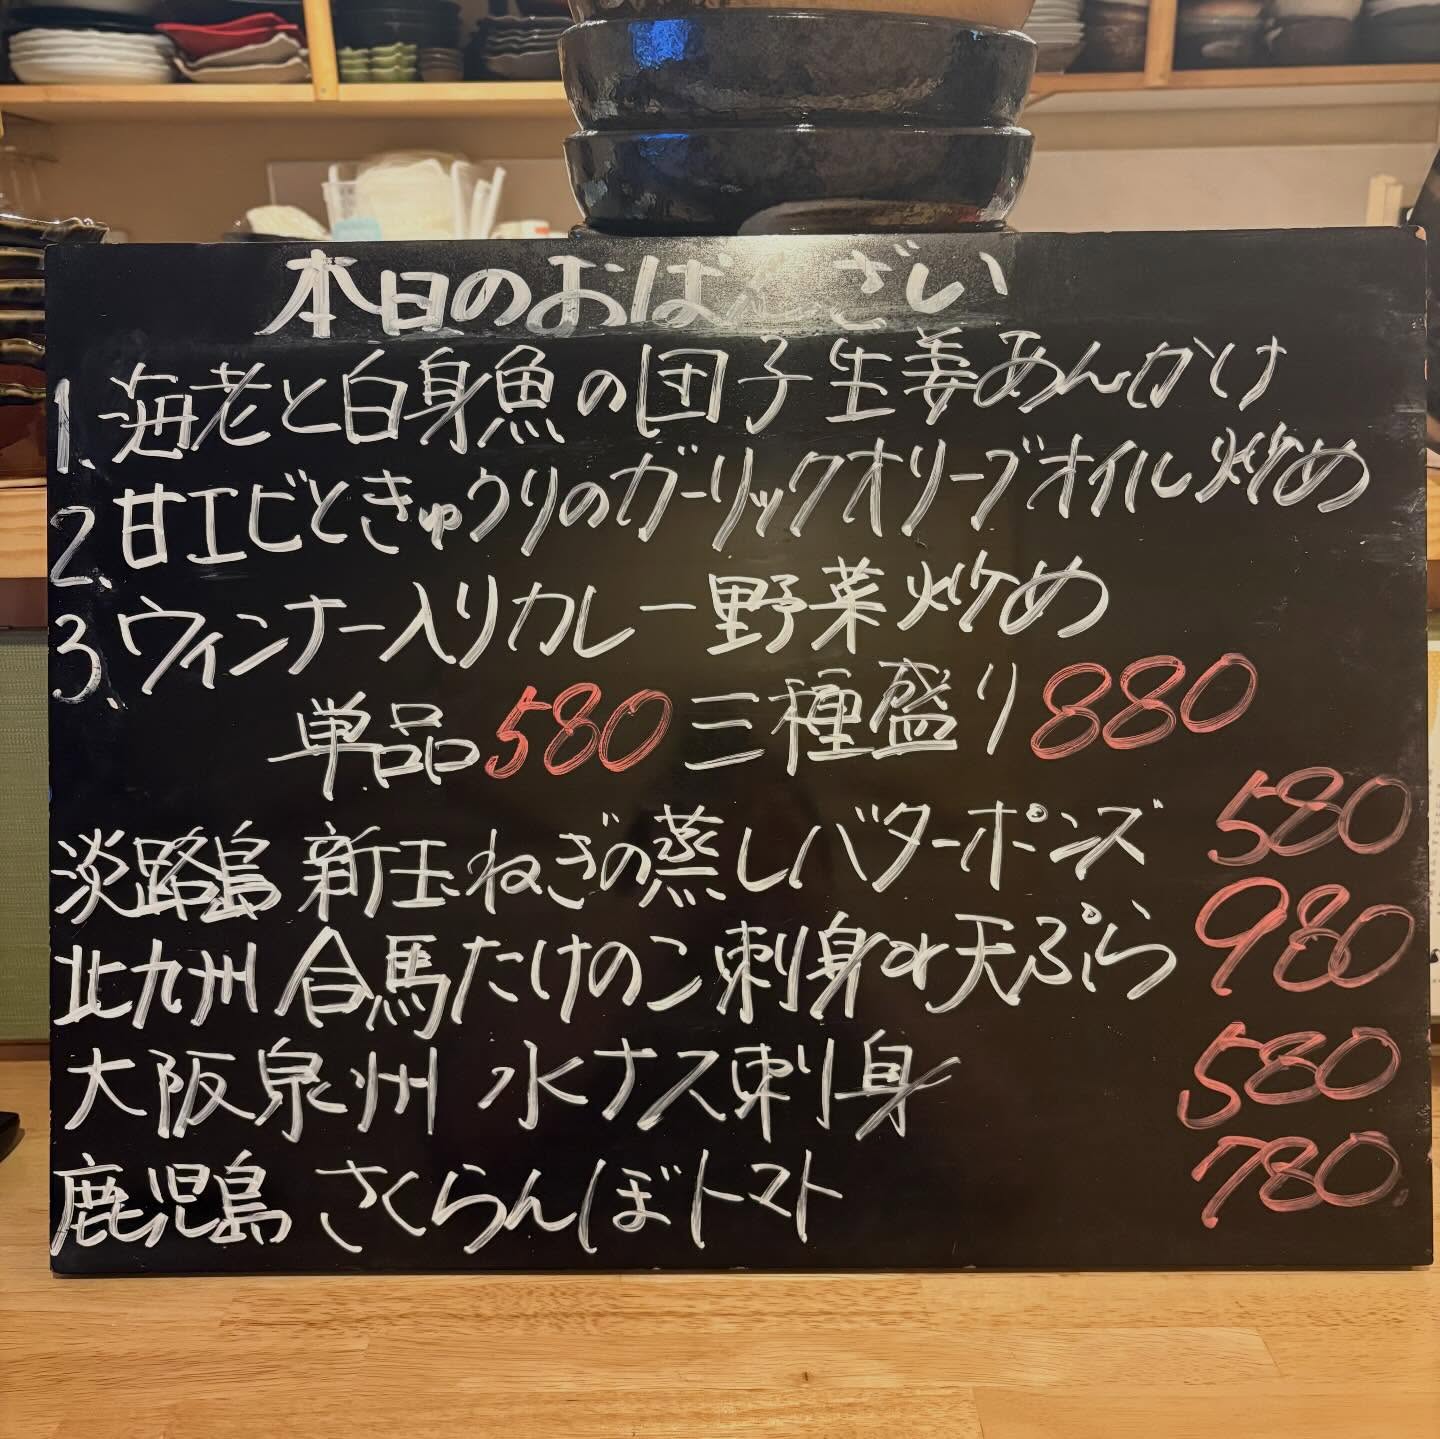 本日のおばんざい
1. 海老と白身魚の団子生姜あんかけ
2. 甘エビときゅうりのガーリックオリーブオイル炒め
3. ウィンナー入りカレー野菜炒め
単品580 三種盛り880
淡路島 新玉ねぎの蒸しバターポンズ 580
北九州 合馬たけのこ刺身or天ぷら 980
大阪泉州 水ナス刺身 580
鹿児島 さくらんぼトマト 780